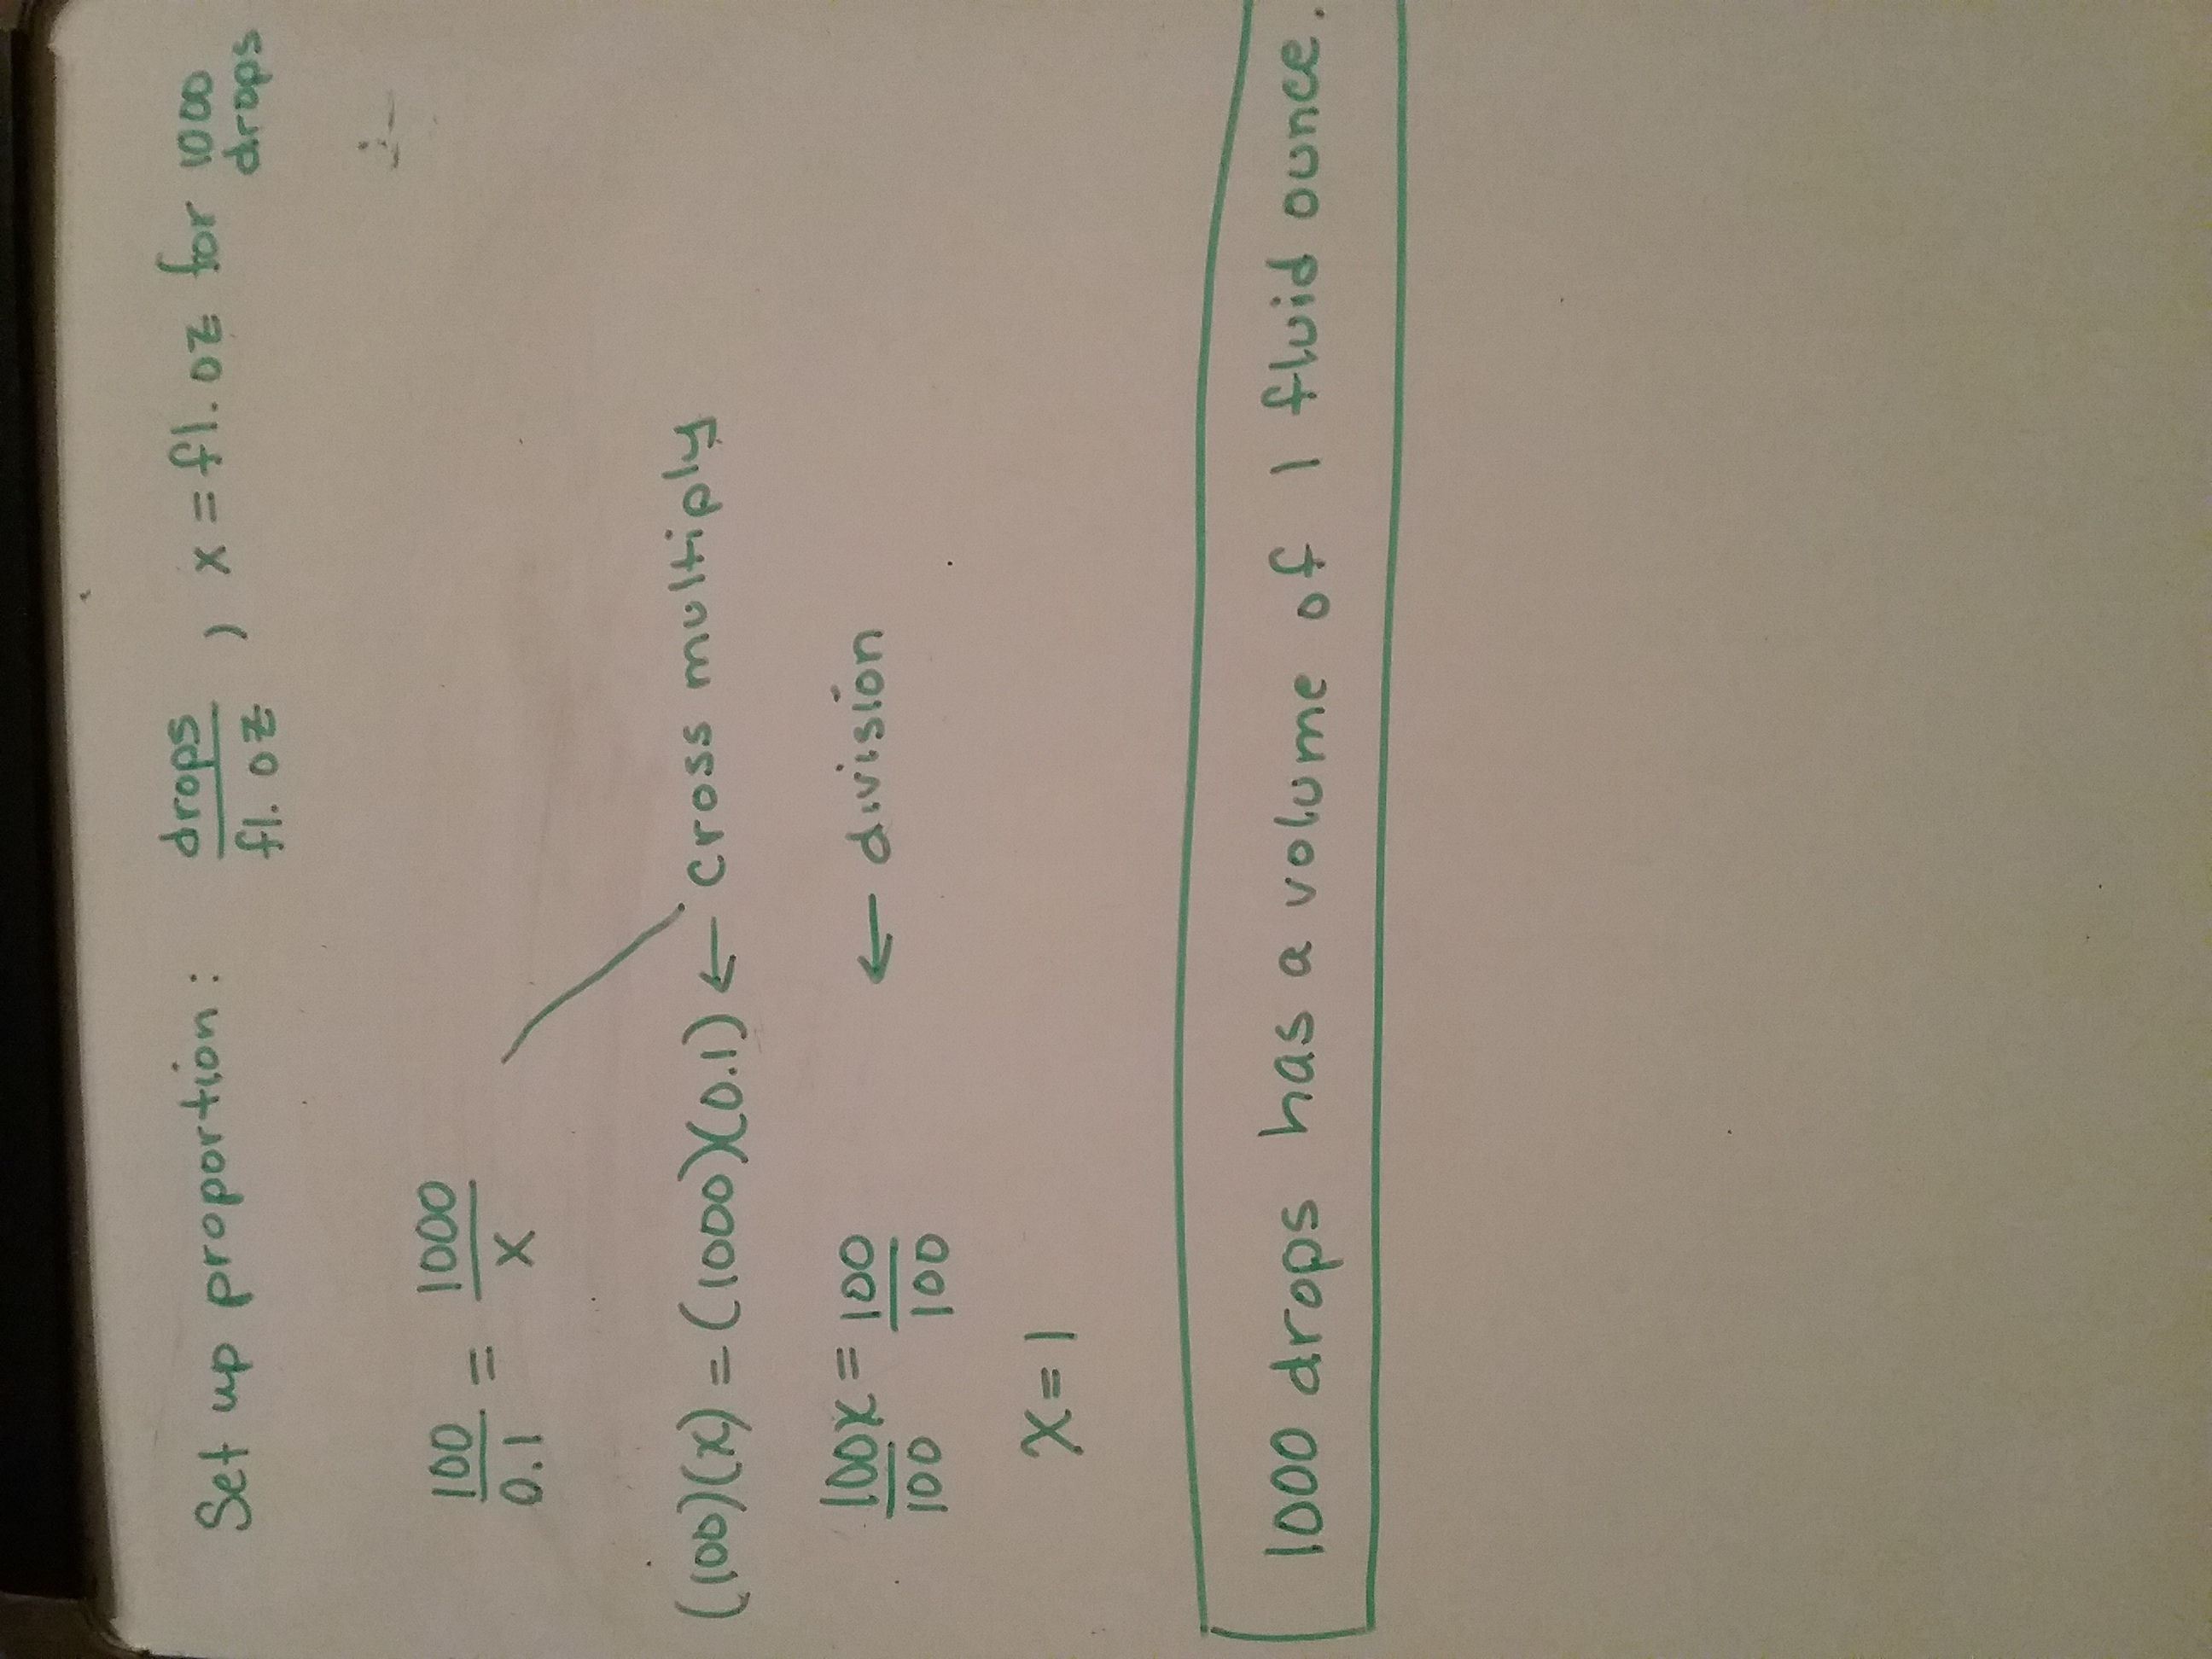 Set up proportion: drops/fl. oz , x = fl. oz for 1000 drops
100/0.1 = 1000/x
(100)(x) = (1000)(0.1) ← cross multiply
100x/100 = 100/100 ← division
x = 1
1000 drops has a volume of 1 fluid ounce.